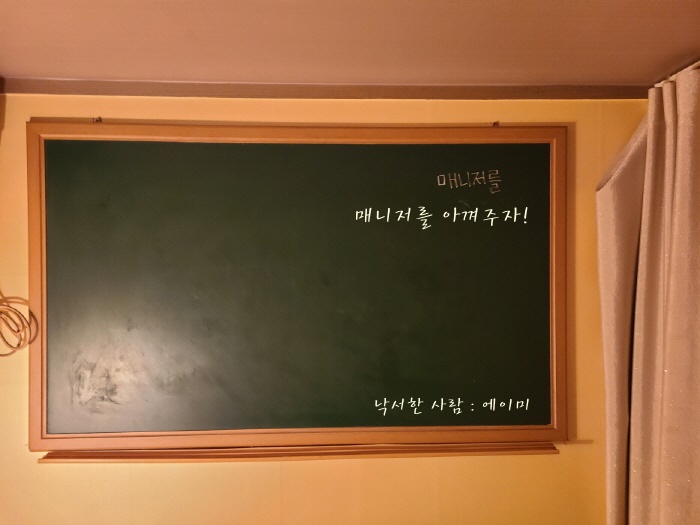 매니저를
매니저를 아껴주자!
낙서한 사람 : 에이미